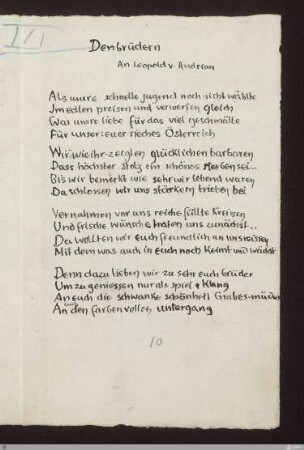 I/1
Den brüdern
An Leopold v. Andrian
Als unsre schnelle jugend noch nicht wählte
Im edlen preisen und verwerfen gleich
War unsre liebe für das viel geschmälte
Für unser: euer rieches Österreich
Wir wie ihr-zarglen glücklichen barbaren
Dass höchster stolz ein schönes sei..
Bis wir bemerkt wie sehr wir lebend waren
Da schlossen wir uns stärkern trieben bei
Vernahmen vor uns reiche fülle kreisen
Und frische wünsche traten uns zunächst..
Da wollten wir euch freundlich an uns reissen
Mit dem was auch in euch noch keimt und wächst
Denn dazu lieben wir zu sehr euch brüder
Um zu geniessen nur als spiel + klang
An euch die schwanke schönheit grabes-müder
An euch den farbenvollen untergang
10